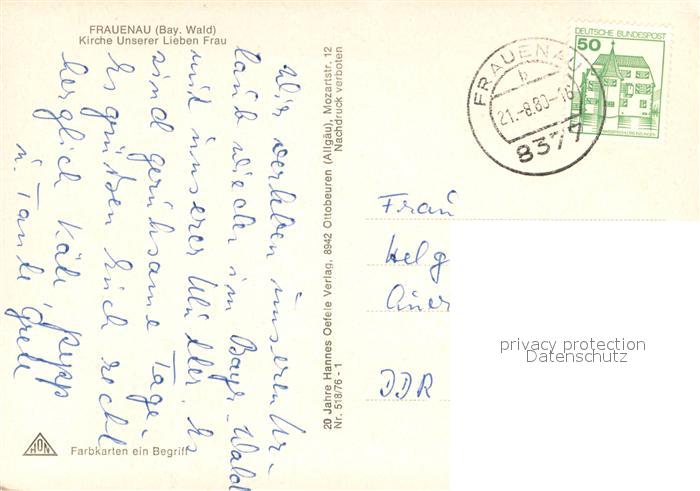 FRAUENAU (Bay. Wald)
Kirche Unserer Lieben Frau
Wir verleben unseren Ur-
laub wieder im Bayr. Wald
mit unserer Mutter. Es
sind geruhsame Tage.
Es grüßen Euch recht
herzlich Käte
u. Tante Grete
20 Jahre Hannes Oefele Verlag, 8942 Ottobeuren (Allgäu), Mozartstr. 12
Nr. 518/76 - 1 Nachdruck verboten
HON
Farbkarten ein Begriff
FRAUENAU
b
21.-8.80-16
8377
DEUTSCHE BUNDESPOST
50
Frau
Helg
Auer
DDR
privacy protection
Datenschutz